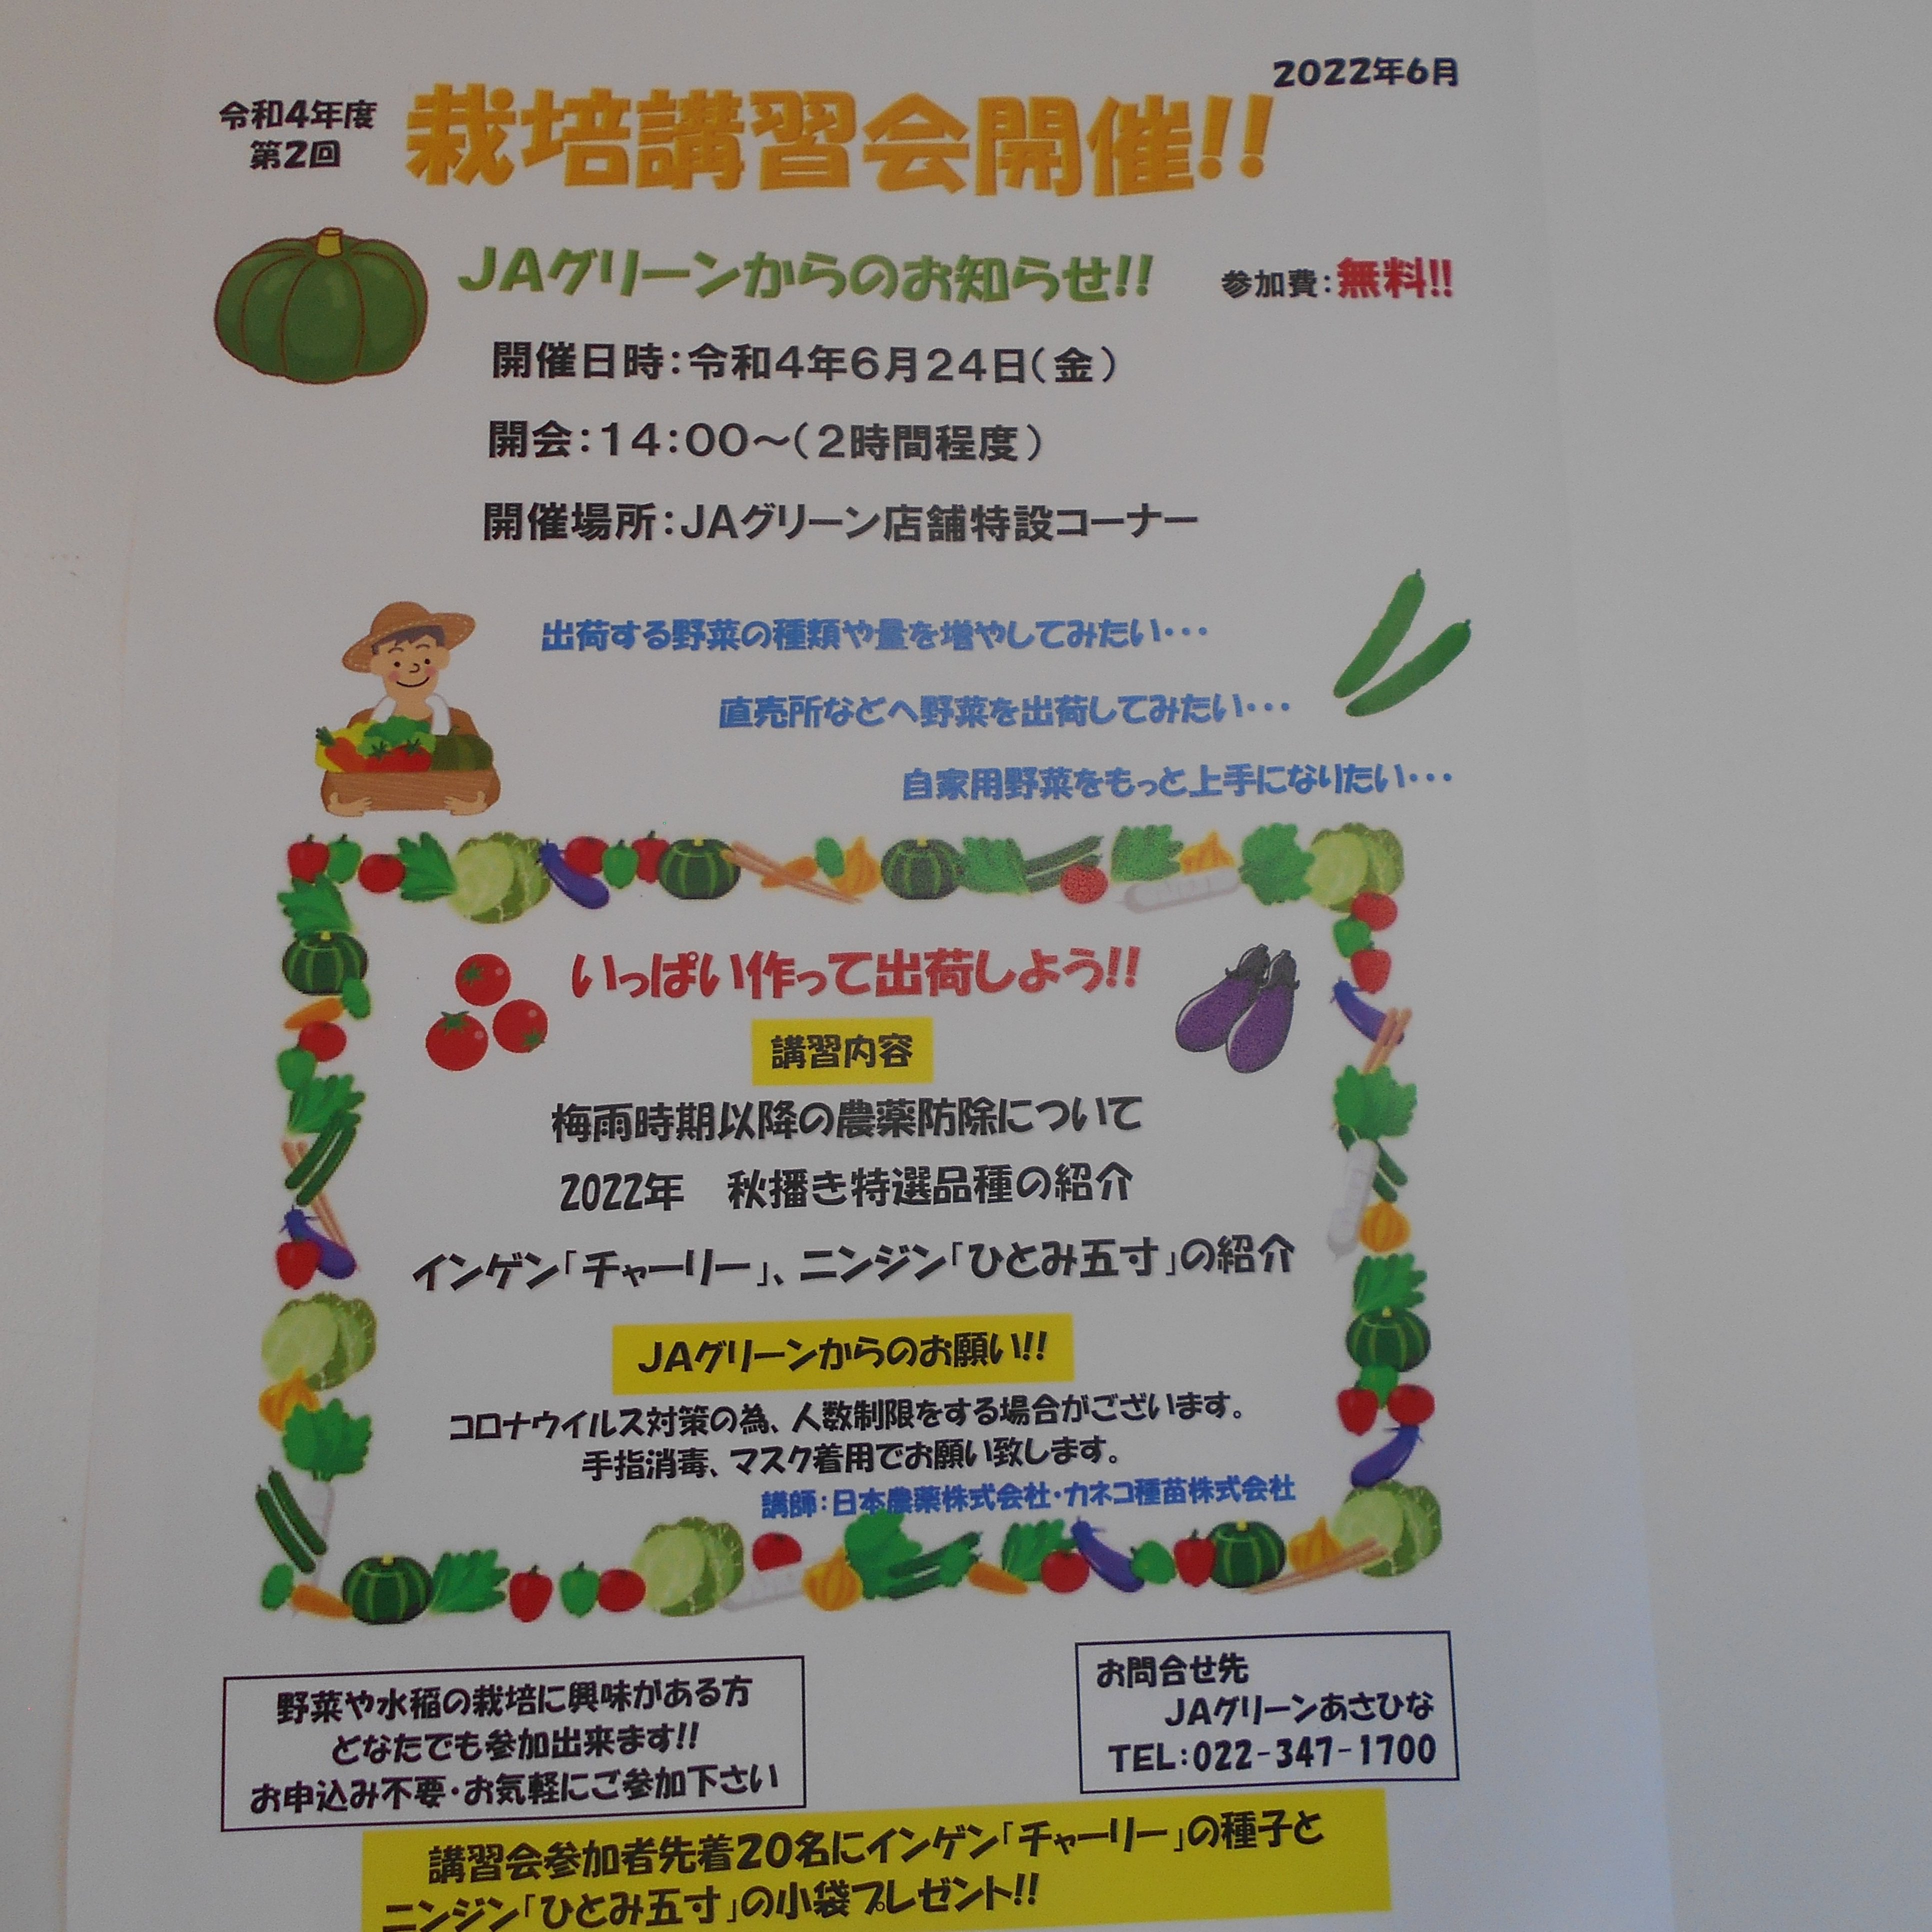 2022年6月
令和4年度
第2回
栽培講習会開催!!
JAグリーンからのお知らせ!!
参加費：無料!!
開催日時：令和4年6月24日（金）
開会：14：00～（2時間程度）
開催場所：JAグリーン店舗特設コーナー
出荷する野菜の種類や量を増やしてみたい・・・
直売所などへ野菜を出荷してみたい・・・
自家用野菜をもっと上手になりたい・・・
いっぱい作って出荷しよう!!
講習内容
梅雨時期以降の農薬防除について
2022年　秋播き特選品種の紹介
インゲン「チャーリー」、ニンジン「ひとみ五寸」の紹介
JAグリーンからのお願い!!
コロナウイルス対策の為、人数制限をする場合がございます。
手指消毒、マスク着用でお願い致します。
講師：日本農薬株式会社・カネコ種苗株式会社
野菜や水稲の栽培に興味がある方
どなたでも参加出来ます!!
お申込み不要・お気軽にご参加下さい
お問合せ先
JAグリーンあさひな
TEL：022-347-1700
講習会参加者先着20名にインゲン「チャーリー」の種子と
ニンジン「ひとみ五寸」の小袋プレゼント!!